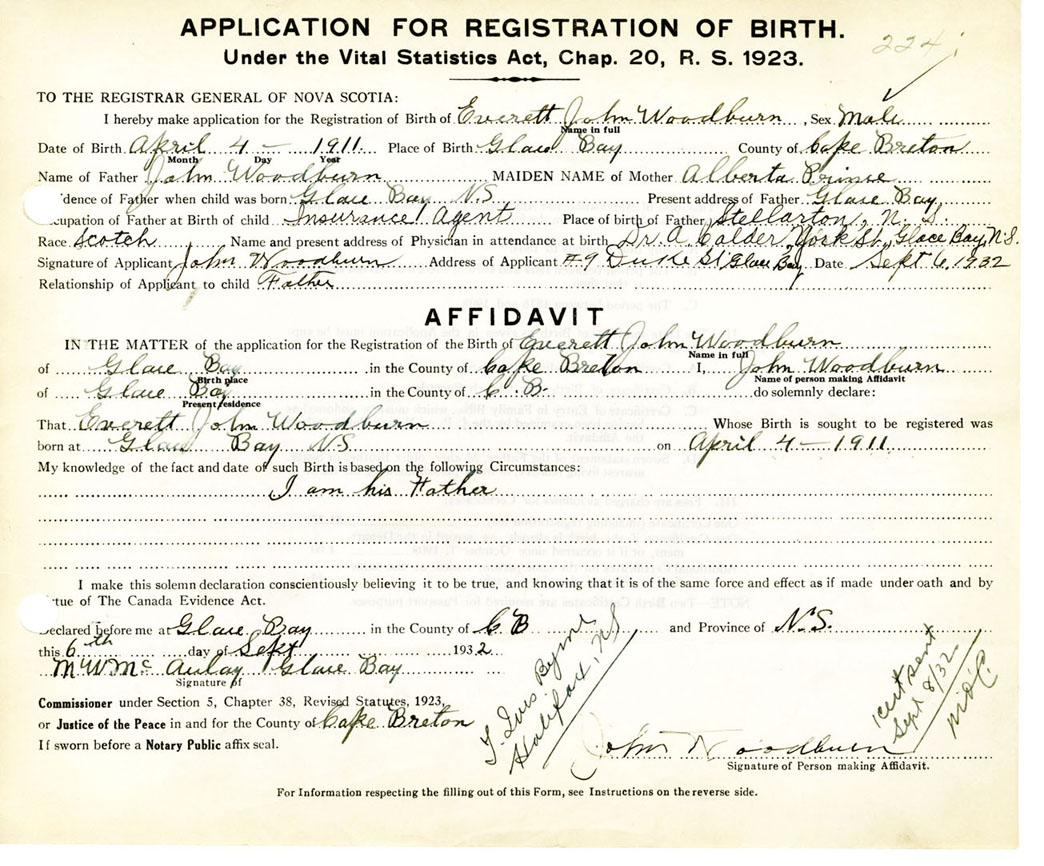 APPLICATION FOR REGISTRATION OF BIRTH.
224
Under the Vital Statistics Act, Chap. 20, R. S. 1923.
TO THE REGISTRAR GENERAL OF NOVA SCOTIA:
I hereby make application for the Registration of Birth of Everett John Woodburn, Sex Male
Name in full
Date of Birth April 4 - 1911. Place of Birth Glace Bay County of Cape Breton
Month Day Year
Name of Father John Woodburn MAIDEN NAME of Mother Alberta Prince
idence of Father when child was born: Glace Bay N.S. Present address of Father Glace Bay
cupation of Father at Birth of child Insurance Agent Place of birth of Father Stellarton, N. S.
Race Scotch Name and present address of Physician in attendance at birth Dr. A. Calder, York St., Glace Bay, N.S.
Signature of Applicant John Woodburn Address of Applicant #9 Duke St Glace Bay Date Sept 6, 1932
Relationship of Applicant to child Father
AFFIDAVIT
IN THE MATTER of the application for the Registration of the Birth of Everett John Woodburn
Name in full
of Glace Bay in the County of Cape Breton I, John Woodburn
Birth place Name of person making Affidavit
of Glace Bay in the County of C. B. do solemnly declare:
Present residence
That Everett John Woodburn Whose Birth is sought to be registered was
born at Glace Bay N.S on April 4 - 1911
My knowledge of the fact and date of such Birth is based on the following Circumstances:
I am his Father
I make this solemn declaration conscientiously believing it to be true, and knowing that it is of the same force and effect as if made under oath and by
rtue of The Canada Evidence Act.
Declared before me at Glace Bay in the County of C B and Province of N.S.
this 6th day of Sept 1932
M W Mc Aulay Glace Bay
Signature of
Commissioner under Section 5, Chapter 38, Revised Statutes, 1923,
or Justice of the Peace in and for the County of Cape Breton
If sworn before a Notary Public affix seal.
Byrne
Halifax, NS
1 cert sent
Sept 8/32
John Woodburn
Signature of Person making Affidavit.
For Information respecting the filling out of this Form, see Instructions on the reverse side.